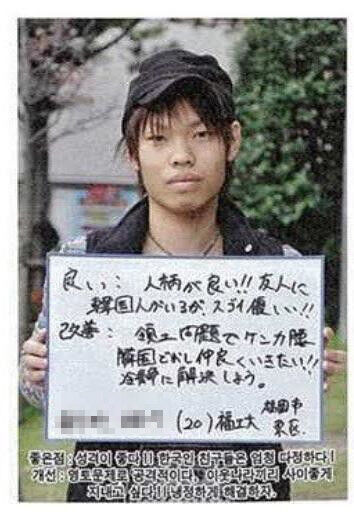 良い: 人柄が良い!! 友人に
韓国人がいるが、スゴイ優しい!!
改善: 領土問題でケンカ腰
隣国どおし仲良くいきたい!!
冷静に解決しよう。
(20) 福工大 福岡市
東区
좋은점 : 성격이 좋다!! 한국인 친구들은 엄청 다정하다!
개선 : 영토문제로 공격적이다. 이웃나라끼리 사이좋게
지내고 싶다!! 냉정하게 해결하자.